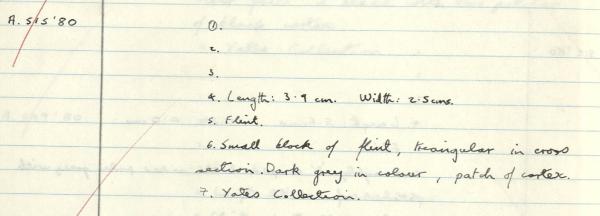 A. 515'80
1.
2.
3.
4. Length: 3.9 cm. Width: 2.5cms.
5. Flint.
6. Small block of flint, triangular in cross
section. Dark grey in colour, patch of cortex.
7. Yates Collection.